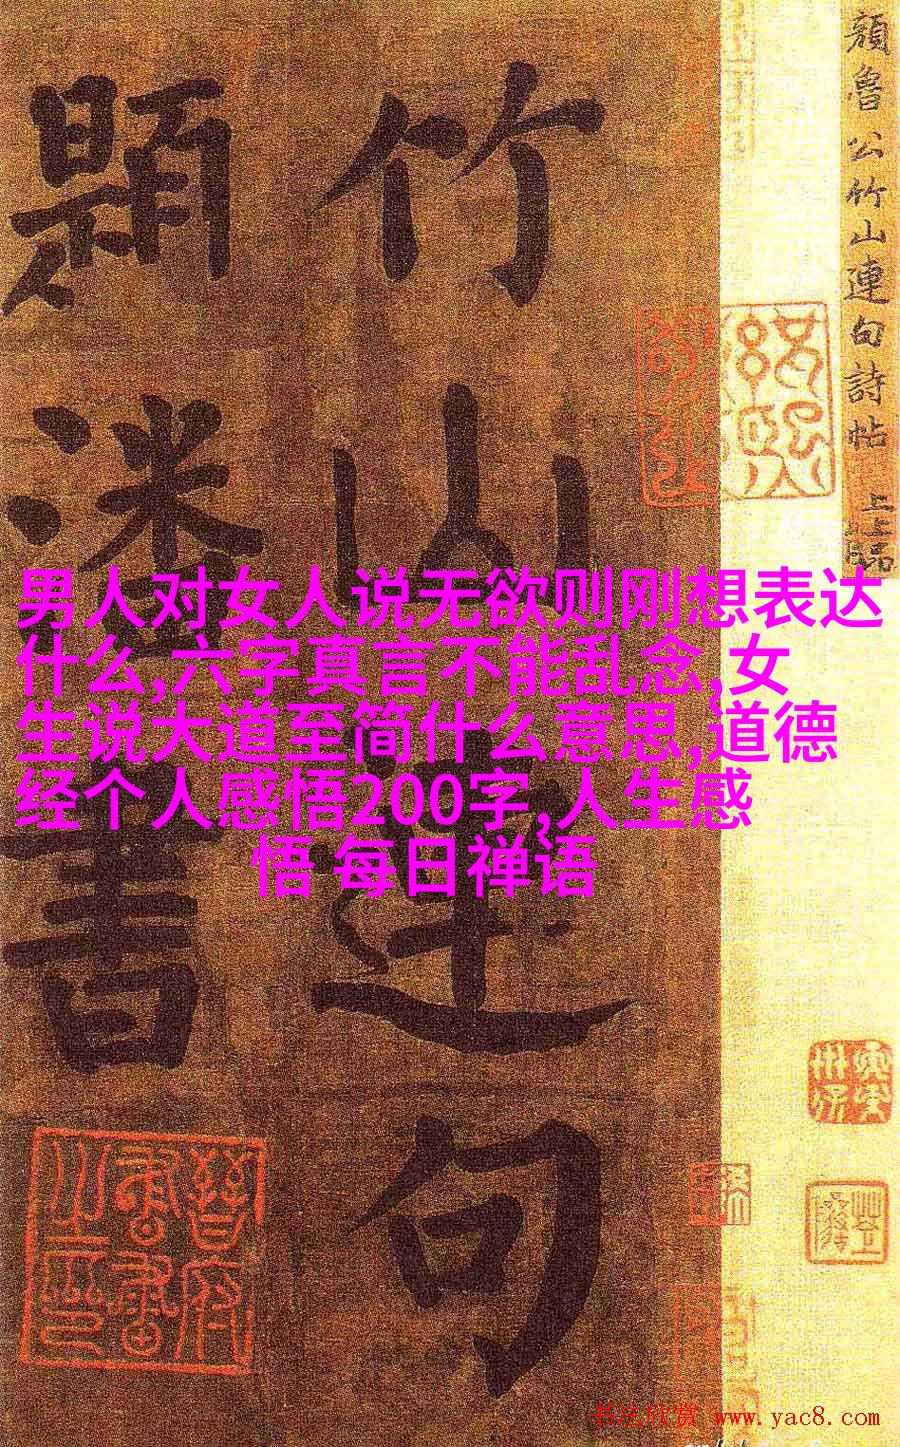 顔魯公竹山連句詩帖 上上品
竹山連句
題潘書
男人对女人说无欲则刚想表达
什么,六字真言不能乱念,女
生说大道至简什么意思,道德
经个人感悟200字,人生感
悟 每日禅语
書法欣赏 www.yac8.com